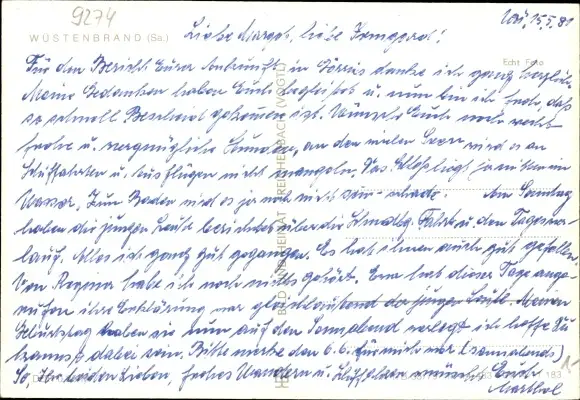 9274
15.5.81
WÜSTENBRAND (Sa.)
Liebe Margot, liebe Irmgard!
Echt Foto
Für den Bericht Eurer Ankunft in danke ich ganz herzlich.
Meine Gedanken haben Euch begleitet u. nun bin ich froh, daß
so schnell Bescheid gekommen ist. Wünsche Euch noch recht
frohe u. vergnügliche Stunden, an den vielen Seen wird es an
Schiffahrten u. Ausflügen nicht mangeln. Das Schloß liegt ja mitten im
Wasser. Zum Baden wird es ja noch nicht sein - schade. Am Sonntag
haben die jungen Leute berichtet über die Fahrt u. den Tages-
lauf. Alles ist ganz gut gegangen. Es hat ihnen auch gut gefallen.
Von Regina habe ich noch nichts gehört. Erna hat dieser Tage ange-
rufen ihre Erklärung war der jungen Leute. Meinen
Geburtstag haben sie nun auf den Sonnabend verlegt ich hoffe Ihr
dabei sein. Bitte merke den 6.6. für mich vor (sonnabends)
So, Ihr beiden Lieben, frohes Wandern u. wünscht Euch
183
BILD UND HEIMAT REICHENBACH (VOGTL)